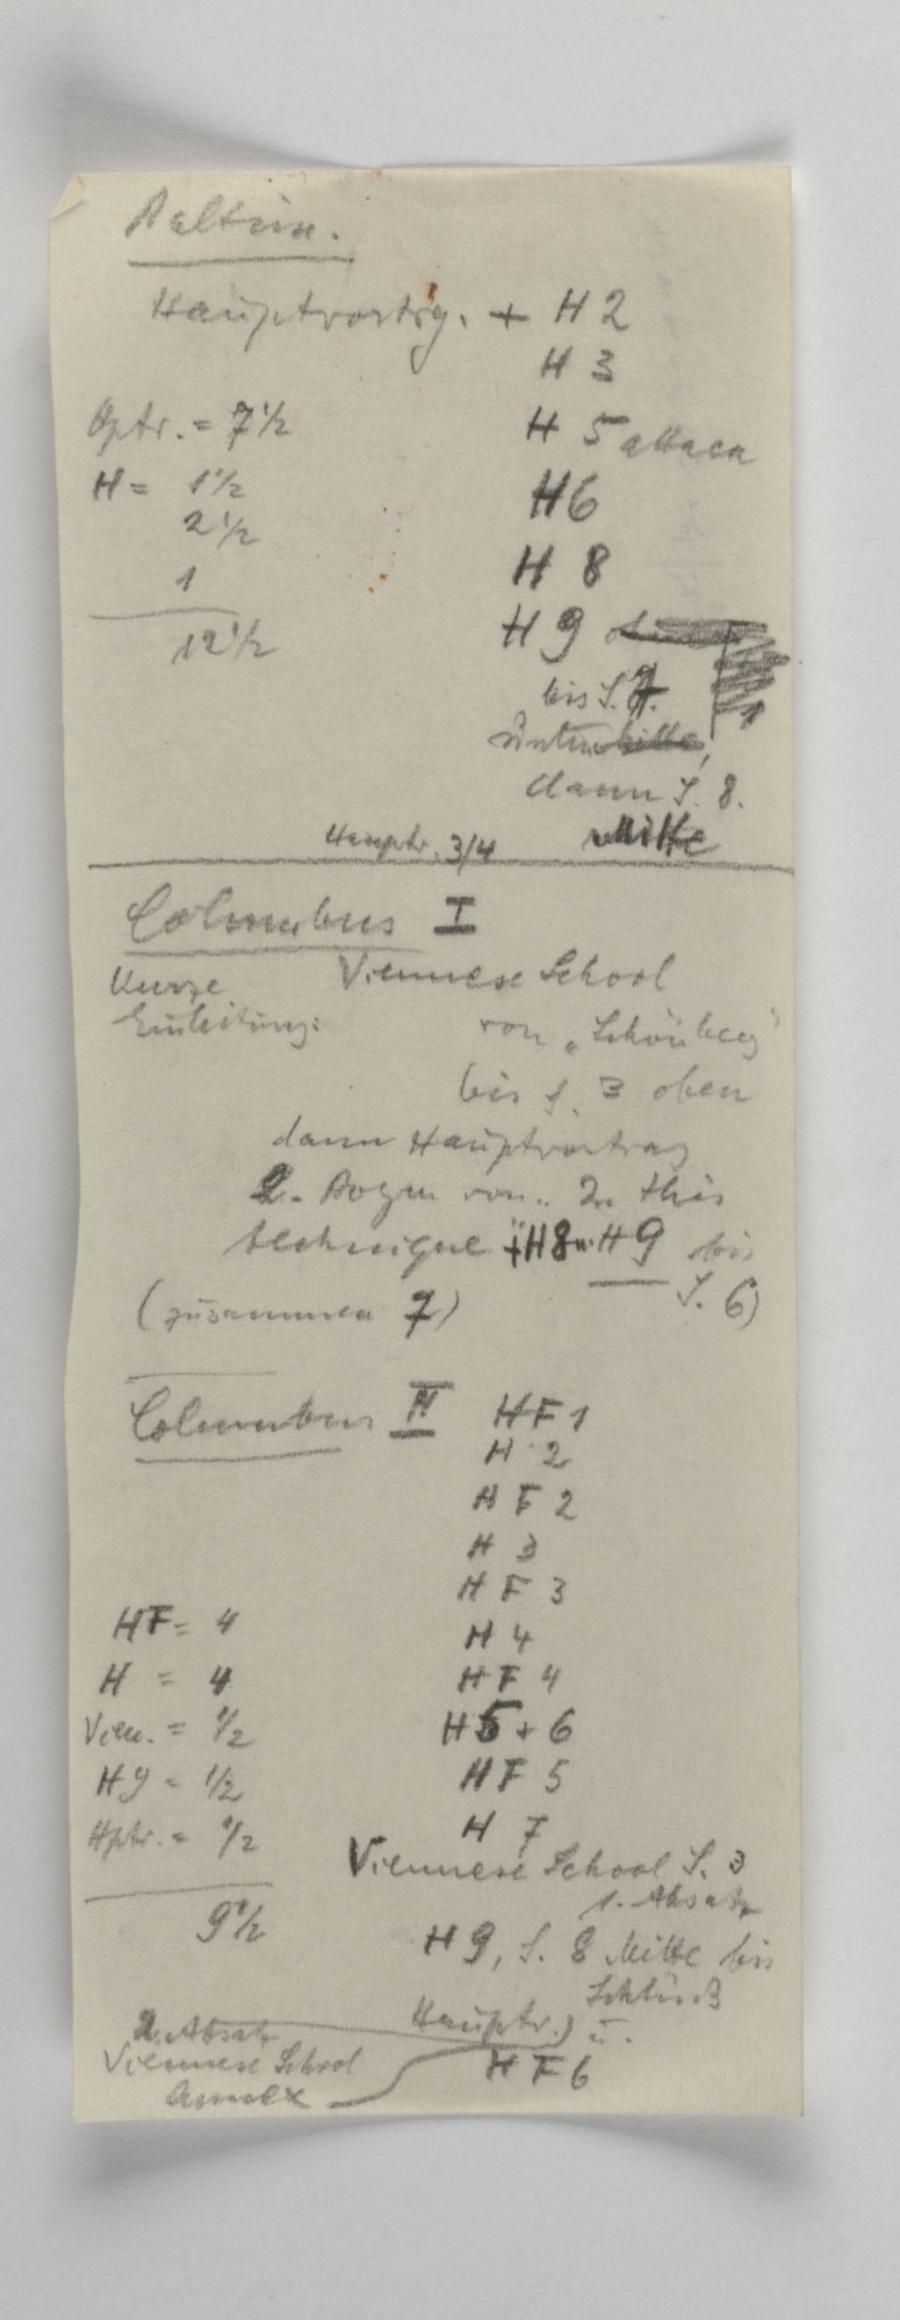 Baltim.
Hauptvortrg. + H 2
H 3
Hptr. = 7 1/2
H 5 attaca
H = 1 1/2
H 6
2 1/2
1
H 8
12 1/2
H 9
bis S. 7.
unten
1
dann S. 8.
Mitte
Hauptr. 3/4
Columbus I
Kurze Viennese School
Einleitung:
von „Schönberg"
bis S. 3 oben
dann Hauptvortrag
2. Bogen von „2. this
technique" + H 8 u. H 9 bis
S. 6)
(zusammen 7)
Columbus II
HF 1
H 2
HF 2
H 3
HF 3
HF = 4
H 4
H = 4
HF 4
Vien. = 1/2
H 5 + 6
H 9 = 1/2
HF 5
Hptr. = 1/2
H 7
Viennese School S. 3
1. Absatz
9 1/2
H 9, S. 8 Mitte bis
Schluß
Hauptr.) u.
2. Absatz
Viennese School
Annex
HF 6